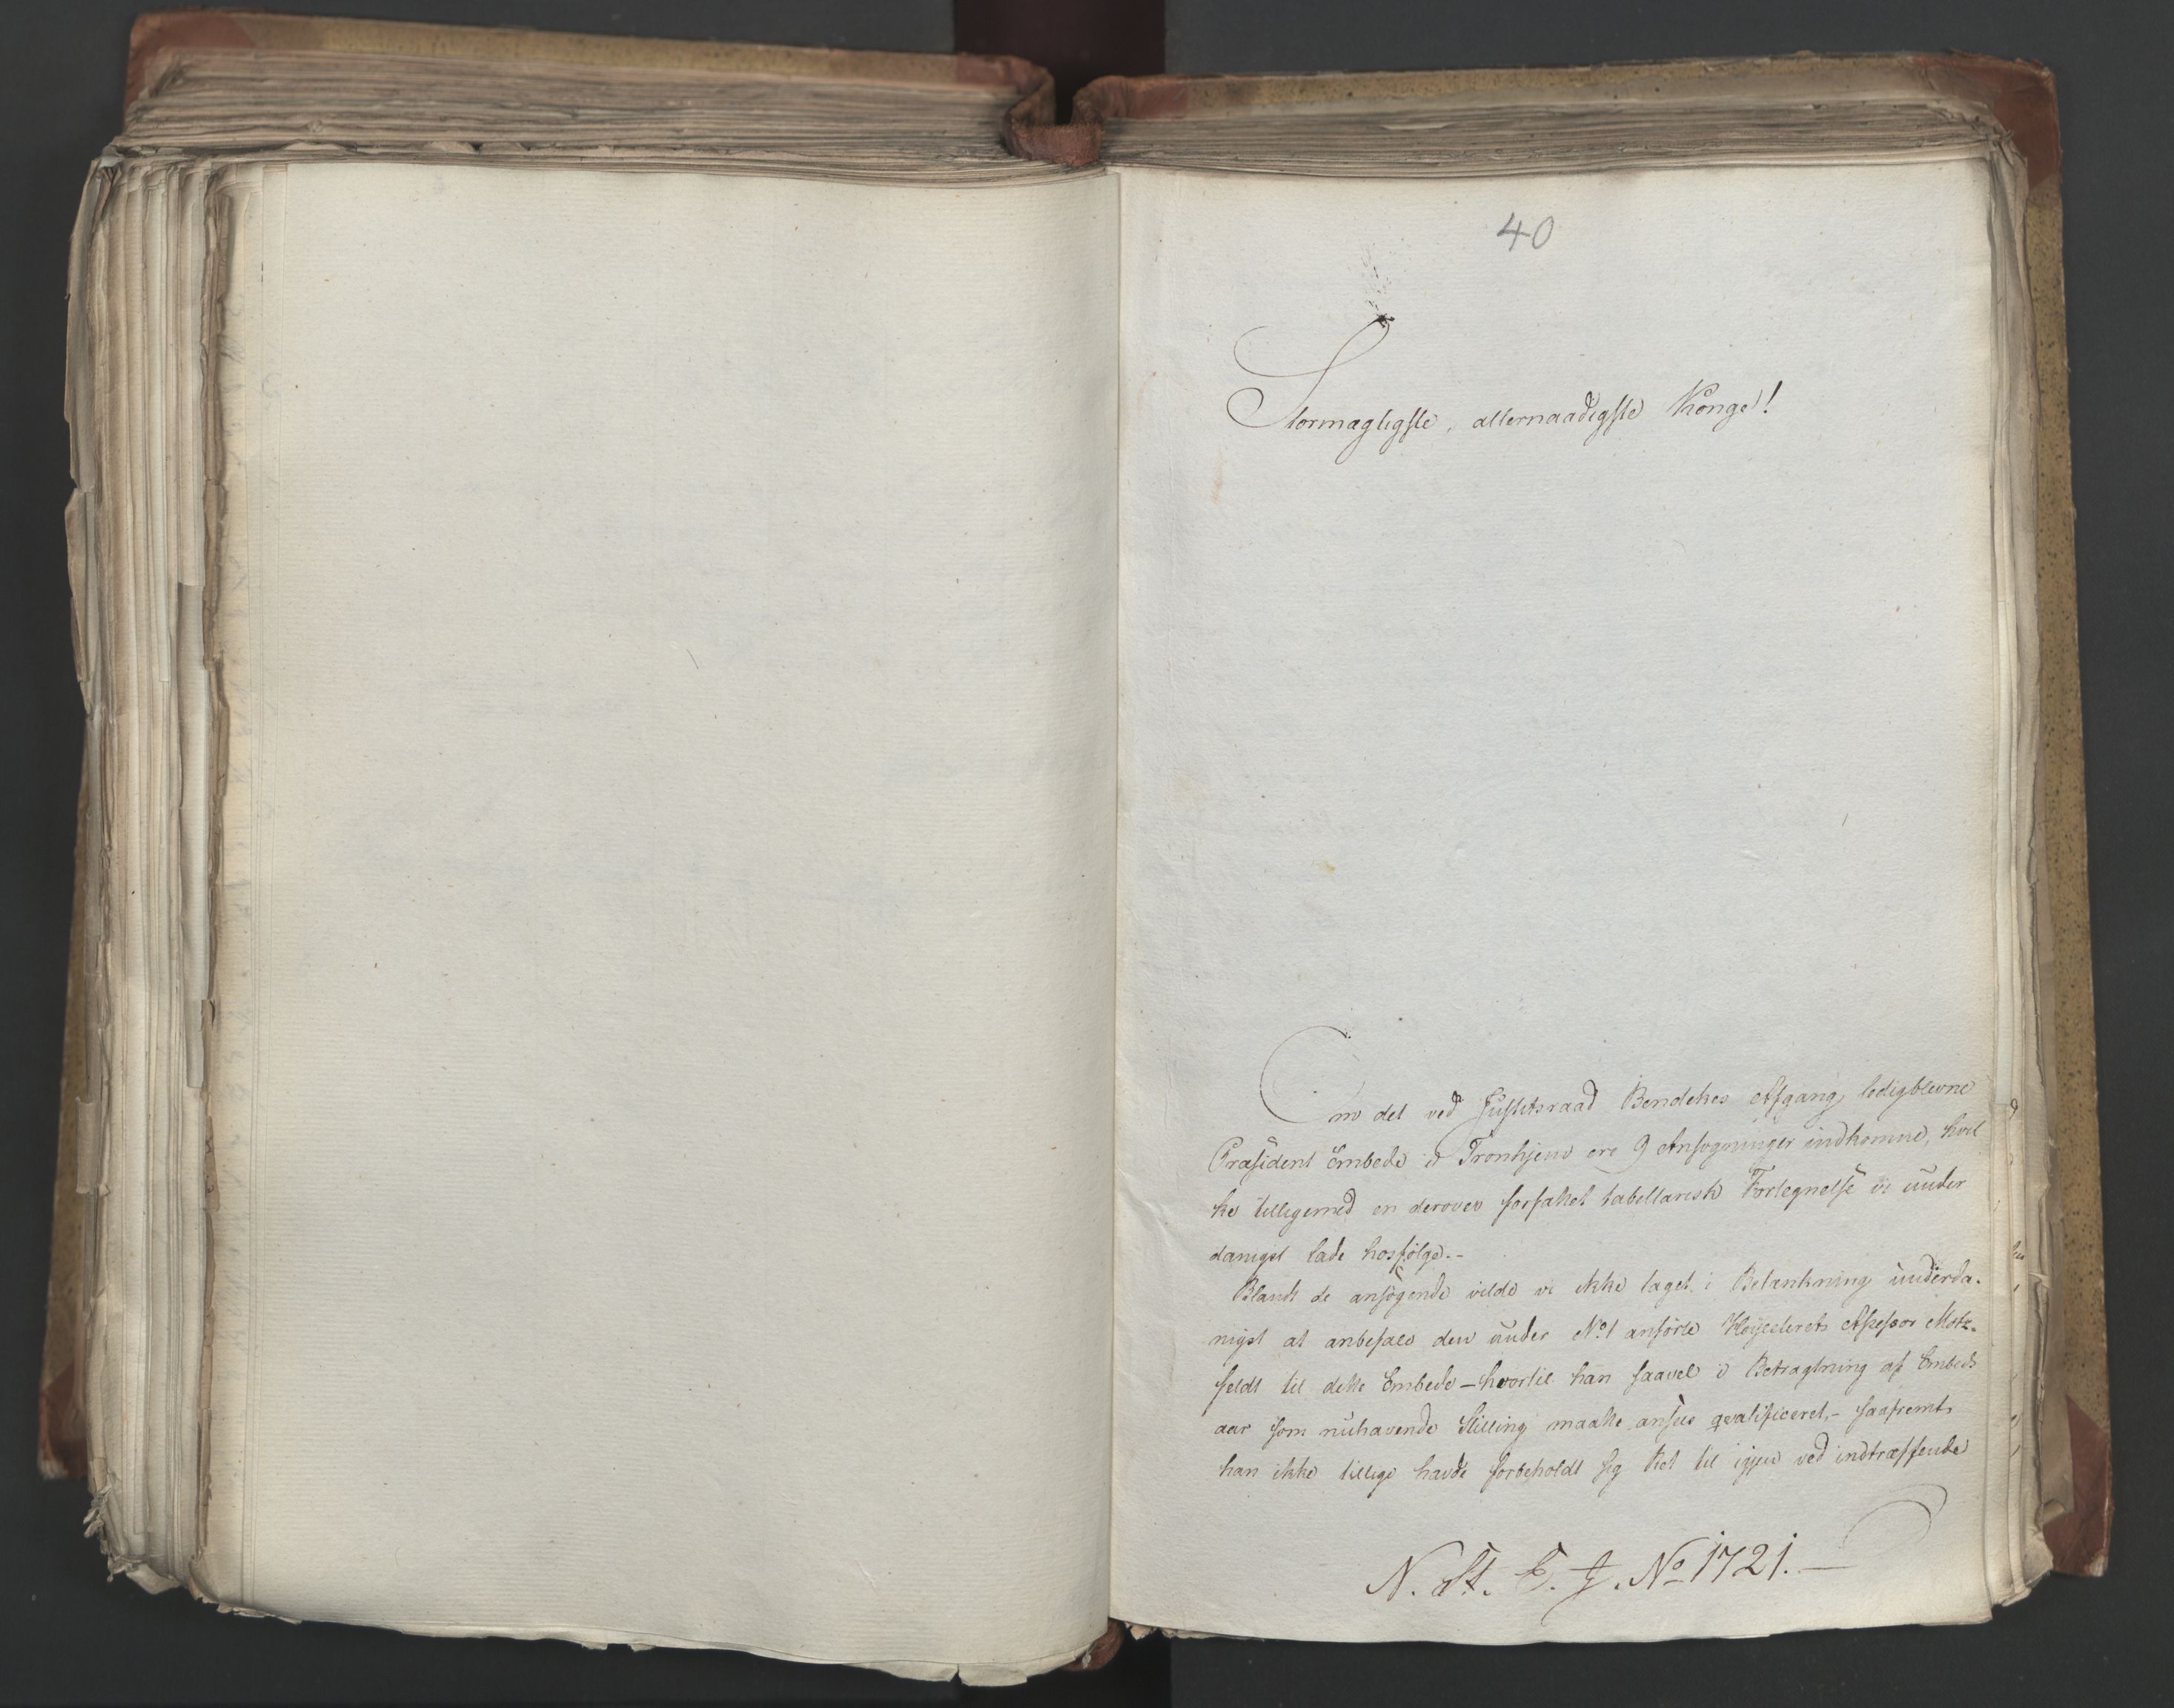 40
Stormægtigste, allernaadigste Konge!
Om det ved Justitsraad Bendekes Afgang ledigblevne
Præsident Embede i Tronhjem ere 9 Ansøgninger indkomne, hvil
ke tilligemed en derover forfattet tabellarisk Fortegnelse vi under
danigst lade hosfølge.-
Blandt de ansøgende vilde vi ikke taget i Betænkning underda-
nigst at anbefale den under No 1 anførte Høyesterets Assessor Motz-
feldt til dette Embede - hvortil han saavel i Betragtning af Embeds
aar som nuhavende Stilling maatte ansees qvalificeret,- saafremt
han ikke tillige havde forbeholdt sig Ret til igjen ved indtræffende
N. St. E. J. No 1721.-